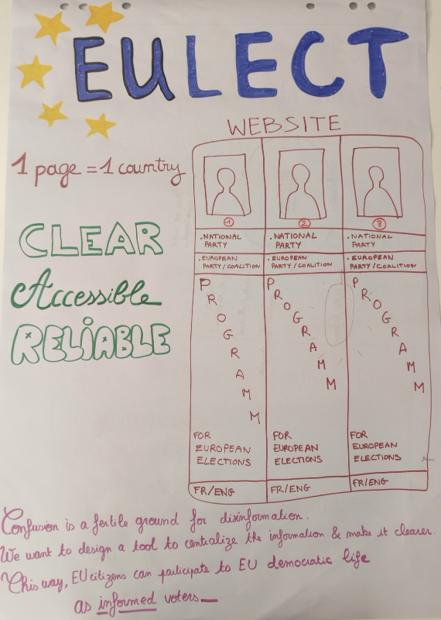 EULECT
WEBSITE
1 page = 1 country
CLEAR
Accessible
RELIABLE
1
. NATIONAL PARTY
. EUROPEAN PARTY/COALITION
PROGRAMM
FOR
EUROPEAN
ELECTIONS
FR/ENG
2
. NATIONAL PARTY
. EUROPEAN PARTY/COALITION
PROGRAMM
FOR
EUROPEAN
ELECTIONS
FR/ENG
3
. NATIONAL PARTY
. EUROPEAN PARTY/COALITION
PROGRAMM
FOR
EUROPEAN
ELECTIONS
FR/ENG
Confusion is a fertile ground for disinformation.
We want to design a tool to centralize the information & make it clearer.
This way, EU citizens can participate to EU democratic life
as informed voters